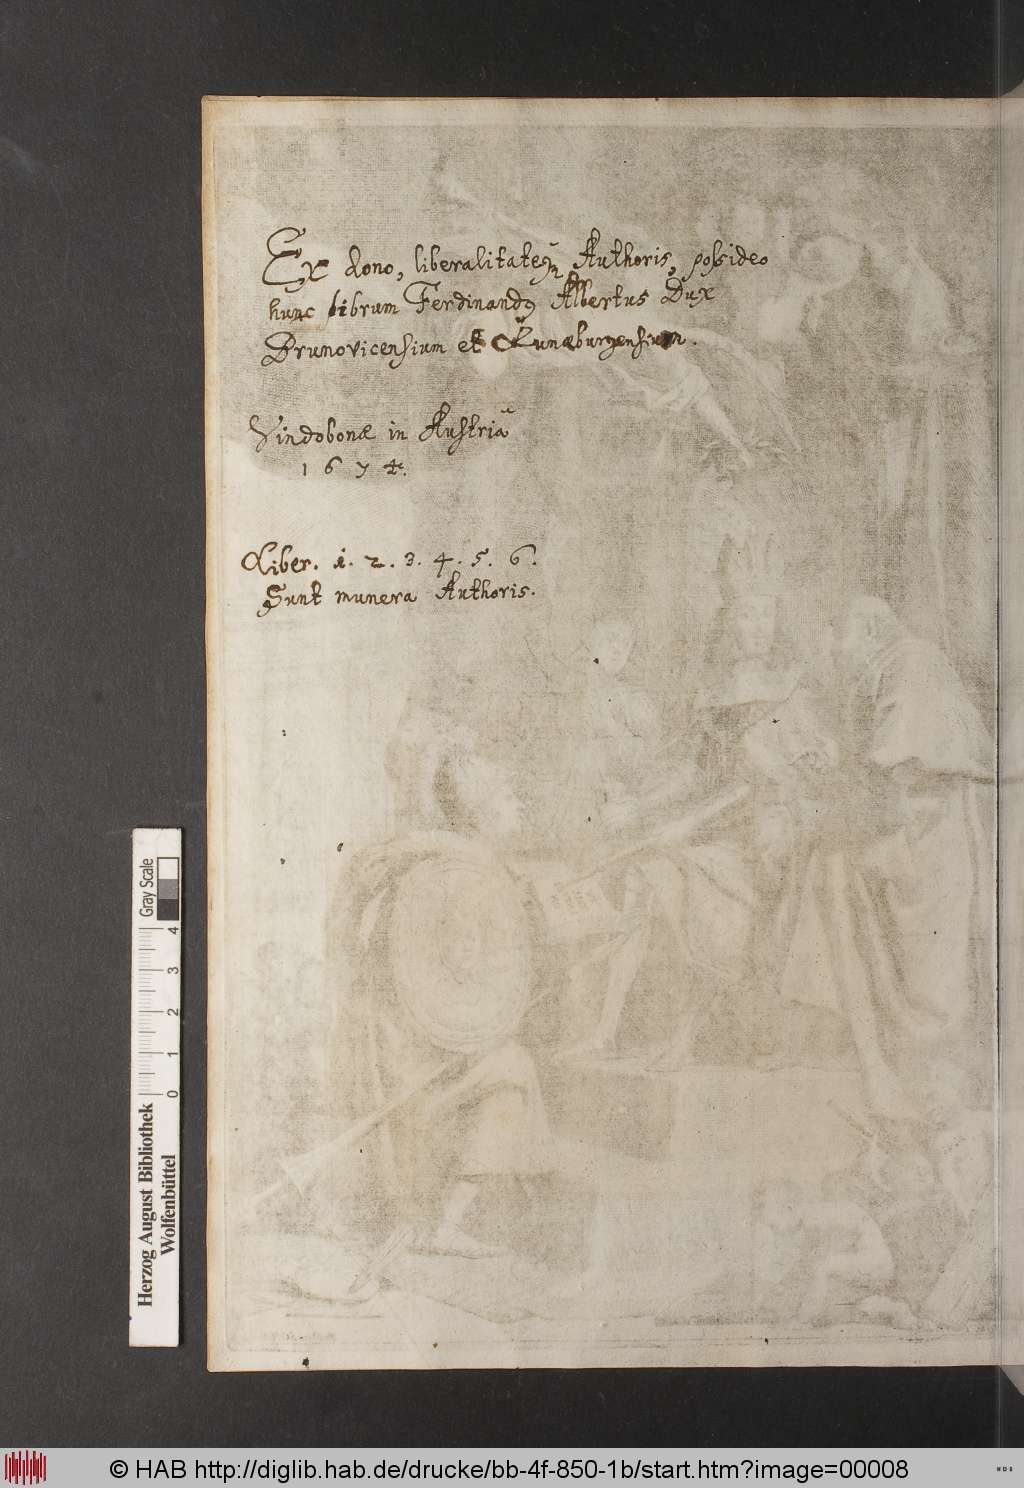 Ex dono, liberalitateq̃ Authoris, possideo
hunc librum Ferdinandꝰ Albertus Dux
Brunovicensium et Lunæburgensium.
Vindobonæ in Austriâ
1674.
Liber. 1. 2. 3. 4. 5. 6.
Sunt munera Authoris.
Gray Scale
0 1 2 3 4
Herzog August Bibliothek
Wolfenbüttel
© HAB http://diglib.hab.de/drucke/bb-4f-850-1b/start.htm?image=00008